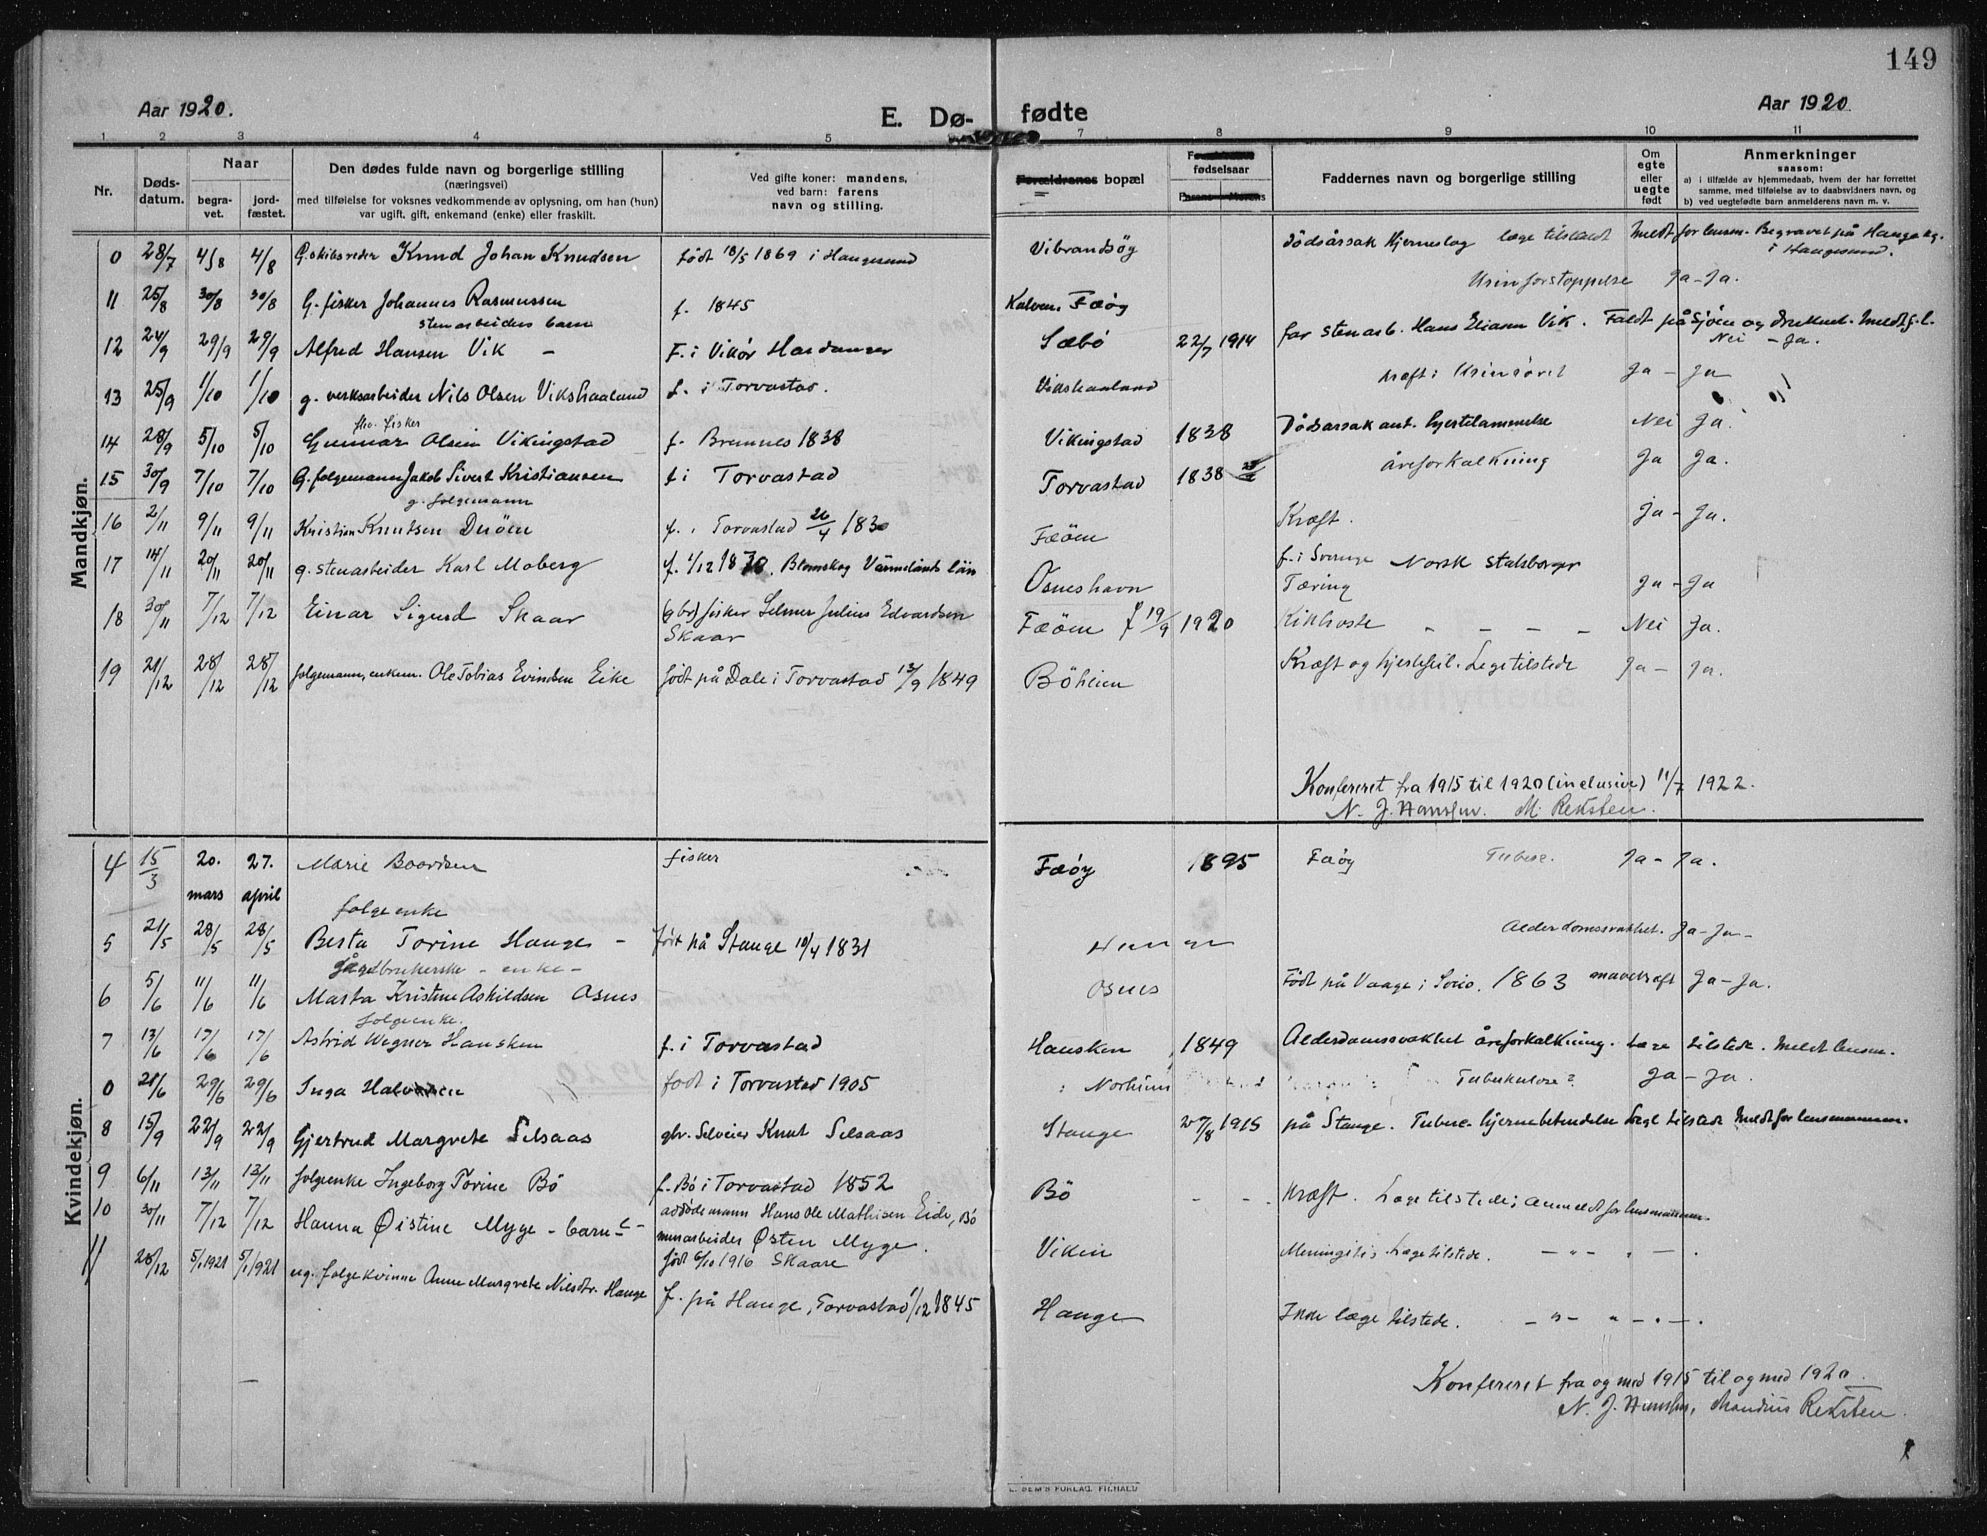 149
Aar 1920.
E. Dø-
fødte
Aar 1920.
1 2 3 4 5 7 8 9 10 11
Nr.
Døds-
datum.
Naar
begra-
vet.
jord-
fæstet.
Den dødes fulde navn og borgerlige stilling
(næringsvei)
med tilføielse for voksnes vedkommende av oplysning, om han (hun)
var ugift, gift, enkemand (enke) eller fraskilt.
Ved gifte koner: mandens,
ved barn: farens
navn og stilling.
Forældrenes bopæl
fødselsaar
Farens Morens
Faddernes navn og borgerlige stilling
Om
egte
eller
uegte
født
Anmerkninger
saasom:
a) i tilfælde av hjemmedaab, hvem der har forrettet
samme, med tilføielse av to daabsvidners navn, og
b) ved uegtefødte barn anmelderens navn m. v.
Mandkjøn.
0 28/7 4/8 4/8 G. skibsreder Knud Johan Knudsen født 18/5 1869 i Haugesund Vibrandsøy Dødsårsak Hjerneslag læge tilstædt Meldt for lensm. Begravet på Hauge kg.
i Haugesund.
11 25/8 30/8 30/8 G. fisker Johannes Rasmussen f. 1845 Kalven, Fæøy Urinforstoppelse Ja - Ja.
stenarbeiders barn
12 24/9 29/9 29/9 Alfred Hansen Vik - F. i Vikør Hardanger Sæbø 22/7 1914 far stenarb. Hans Eliasen Vik. Faldt på sjøen og druknet. Meldt f. l.
Nei - Ja.
13 25/9 1/10 1/10 g. verksarbeider Nils Olsen Vikshaaland f. i Torvastad. Vikshaaland kræft i Urinrøret Ja - Ja
fhv. fisker
14 28/9 5/10 5/10 Gunnar Olsen Vikingstad f. Bremnes 1838 Vikingstad 1838 Dødsårsak ant. hjertelammelse Nei Ja.
15 30/9 7/10 7/10 G. folgemann Jakob Sivert Kristiansen f i Torvastad Torvastad 1838 åreforkalkning Ja Ja.
g. folgemann
16 2/11 9/11 9/11 Kristian Knutsen Duöen f. i Torvastad 26/4 1830 Fæøen Kræft. Ja - Ja.
17 14/11 20/11 20/11 g. stenarbeider Karl Moberg f. 1/12 1870. Blomskog Värmelands län Osneshavn f. i Sverige Norsk statsborger
Tæring Ja - Ja
18 30/11 7/12 7/12 Einar Sigurd Skaar (gbr) fisker Selmer Julius Edvardsen
Skaar Fæøen f 19/9 1920 Kikhoste - - - - Nei Ja.
19 21/12 28/12 28/12 folgemann, enkem. Ole Tobias Evindsen Eike født på Dale i Torvastad 13/9 1849 Böheien Kræft og hjertefeil. Lege tilstede Ja - Ja.
Konfereret fra 1915 til 1920 (inclusive) 11/7 1922.
N. J. Hansen. M. Reksten.
Kvindekjøn.
4 15/3 20. mars 27. april Marie Boardsen fisker Fæøy 1895 Fæøy Tuberc. Ja - Ja.
folgeenke
5 21/5 28/5 28/5 Berta Torine Hauge - født på Stange 10/4 1831 Hauge Alderdomssvakhet. Ja - Ja -
gårdbrukerske - enke -
6 5/6 11/6 11/6 Marta Kristine Askildsen Osnes Osnes Født på Vaage i Sveio. 1863 mavekræft Ja - Ja.
folgeenke.
7 13/6 17/6 17/6 Astrid Wegner Hausken f. i Torvastad Hausken 1849 Alderdomssvakhet åreforkalkning. Læge tilstede. Meldt lensm.
0 21/6 29/6 29/6 Inga Halvorsen født i Torvastad 1905 Norheim Tuberkulose? Ja - Ja.
8 15/9 22/9 22/9 Gjertrud Margrete Selsaas gbr. Selveier Knut Selsaas Stange 27/8 1915 på Stange. Tuberc. hjernebetendelse Lege tilstede Meldt for lensmannen.
9 6/11 13/11 13/11 folgeenke Ingeborg Torine Bö f. Bö i Torvastad 1852 Bö - - - Kræft. Læge tilstede; anmeldt for lensmannen.
avdöde mann Hans Ole Mathisen Eide, Bö
10 30/11 7/12 7/12 Hanna Øistine Myge - barn - murarbeider Østen Myge.
født 6/10 1916 Skaare Viken Meningitis Læge tilstede. - " - " - .
11 28/12 5/1 1921 5/1 1921 ug. folgekvinne Anne Margrete Nilsdtr. Hauge f. på Hauge, Torvastad 1/12 1845 Hauge Ikke læge tilstede. - " - " - . - .
Konfereret fra og med 1915 til og med 1920.
N. J. Hansen, Mandius Reksten.
E. SEM'S FORLAG, FR.HALD